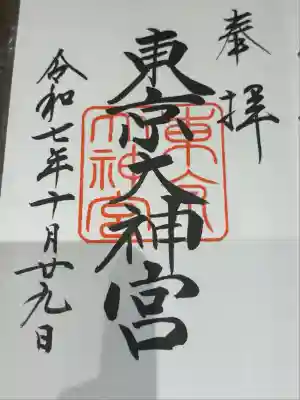 奉拝
東京大神宮
令和七年十月廿九日
東京大神宮